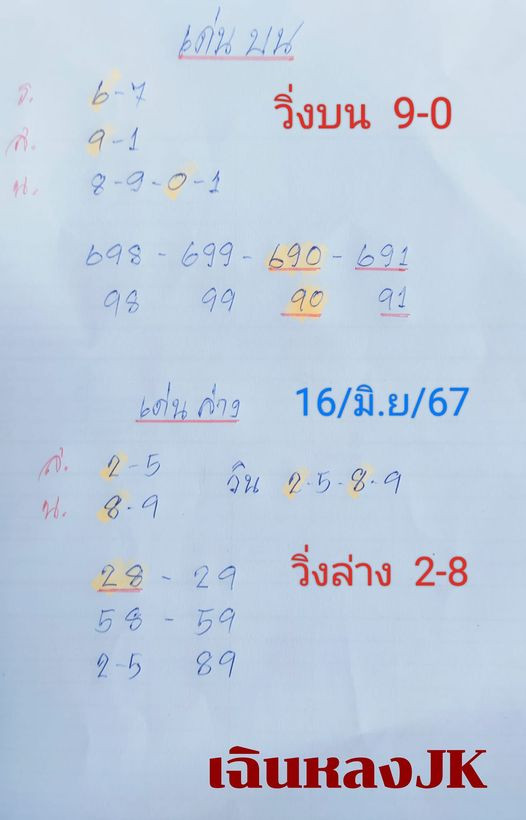 เด่น บน
ร. 6-7
วิ่งบน 9-0
ส. 9-1
น. 8-9-0-1
698 - 699 - 690 - 691
98 99 90 91
เด่น ล่าง 16/มิ.ย/67
ส. 2-5
วิน 2-5-8-9
น. 8-9
28 - 29 วิ่งล่าง 2-8
58 - 59
2-5 89
เฉินหลงJK